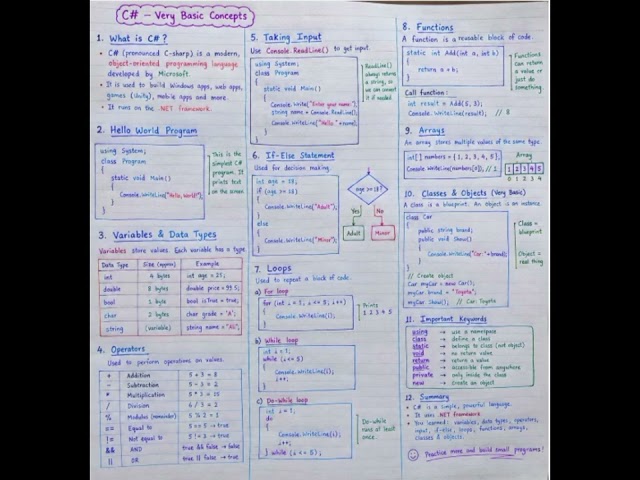 C# – Very Basic Concepts
1. What is C# ?
• C# (pronounced C-sharp) is a modern,
object-oriented programming language
developed by Microsoft.
• It is used to build Windows apps, web apps,
games (Unity), mobile apps and more.
• It runs on the .NET framework.
2. Hello World Program
using System;
class Program
{
static void Main()
{
Console.WriteLine("Hello, World!");
}
}
This is the
simplest C#
program. It
prints text
on the screen
3. Variables & Data Types
Variables store values. Each variable has a type.
Data Type Size (approx) Example
int 4 bytes int age = 25;
double 8 bytes double price = 99.5;
bool 1 byte bool isTrue = true;
char 2 bytes char grade = 'A';
string (variable) string name = "Ali";
4. Operators
Used to perform operations on values.
+ Addition 5 + 3 = 8
- Subtraction 5 - 3 = 2
* Multiplication 5 * 3 = 15
/ Division 6 / 3 = 2
% Modulus (remainder) 5 % 2 = 1
== Equal to 5 == 5 → true
!= Not equal to 5 != 3 → true
&& AND true && false → false
|| OR true || false → true
5. Taking Input
Use Console.ReadLine() to get input.
using System;
class Program
{
static void Main()
{
Console.Write("Enter your name:");
string name = Console.ReadLine();
Console.WriteLine("Hello " + name);
}
}
ReadLine()
always returns
a string, so
we can convert
it if needed.
6. If-Else Statement
Used for decision making
int age = 18;
if (age >= 18)
{
Console.WriteLine("Adult");
}
else
{
Console.WriteLine("Minor");
}
age >= 18?
Yes No
Adult Minor
7. Loops
Used to repeat a block of code.
a) For loop
for (int i = 1; i <= 5; i++)
{
Console.WriteLine(i);
}
Prints
1 2 3 4 5
b) While loop
int i = 1;
while (i <= 5)
{
Console.WriteLine(i);
i++;
}
c) Do-while loop
int i = 1;
do
{
Console.WriteLine(i);
i++;
} while (i <= 5);
Do-while
runs at least
once.
8. Functions
A function is a reusable block of code.
static int Add(int a, int b)
{
return a + b;
}
Functions
can return
a value or
just do
something.
Call function:
int result = Add(5, 3);
Console.WriteLine(result); // 8
9. Arrays
An array stores multiple values of the same type.
int[] numbers = {1, 2, 3, 4, 5};
Console.WriteLine(numbers[0]); // 1
Array
1 2 3 4 5
0 1 2 3 4
10. Classes & Objects (Very Basic)
A class is a blueprint. An object is an instance.
class Car
{
public string brand;
public void Show()
{
Console.WriteLine("Car: " + brand);
}
}
Class =
blueprint
Object =
real thing
// Create object
Car myCar = new Car();
myCar.brand = "Toyota";
myCar.Show(); // Car: Toyota
11. Important Keywords
using → use a namespace
class → define a class
static → belongs to class (not object)
void → no return value
return → return a value
public → accessible from anywhere
private → only inside the class
new → create an object
12. Summary
• C# is a simple, powerful language.
• It uses .NET framework
• You learned: variables, data types, operators,
input, if-else, loops, functions, arrays,
classes & objects.
Practice more and build small programs!